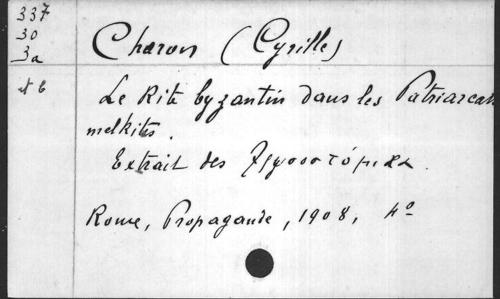 337
30
3a
et b
Charon (Cyrille)
Le Rite byzantin dans les Patriarcats
melkites.
Extrait des Χρυσοστομικά.
Rome, Propagande, 1908, 4º